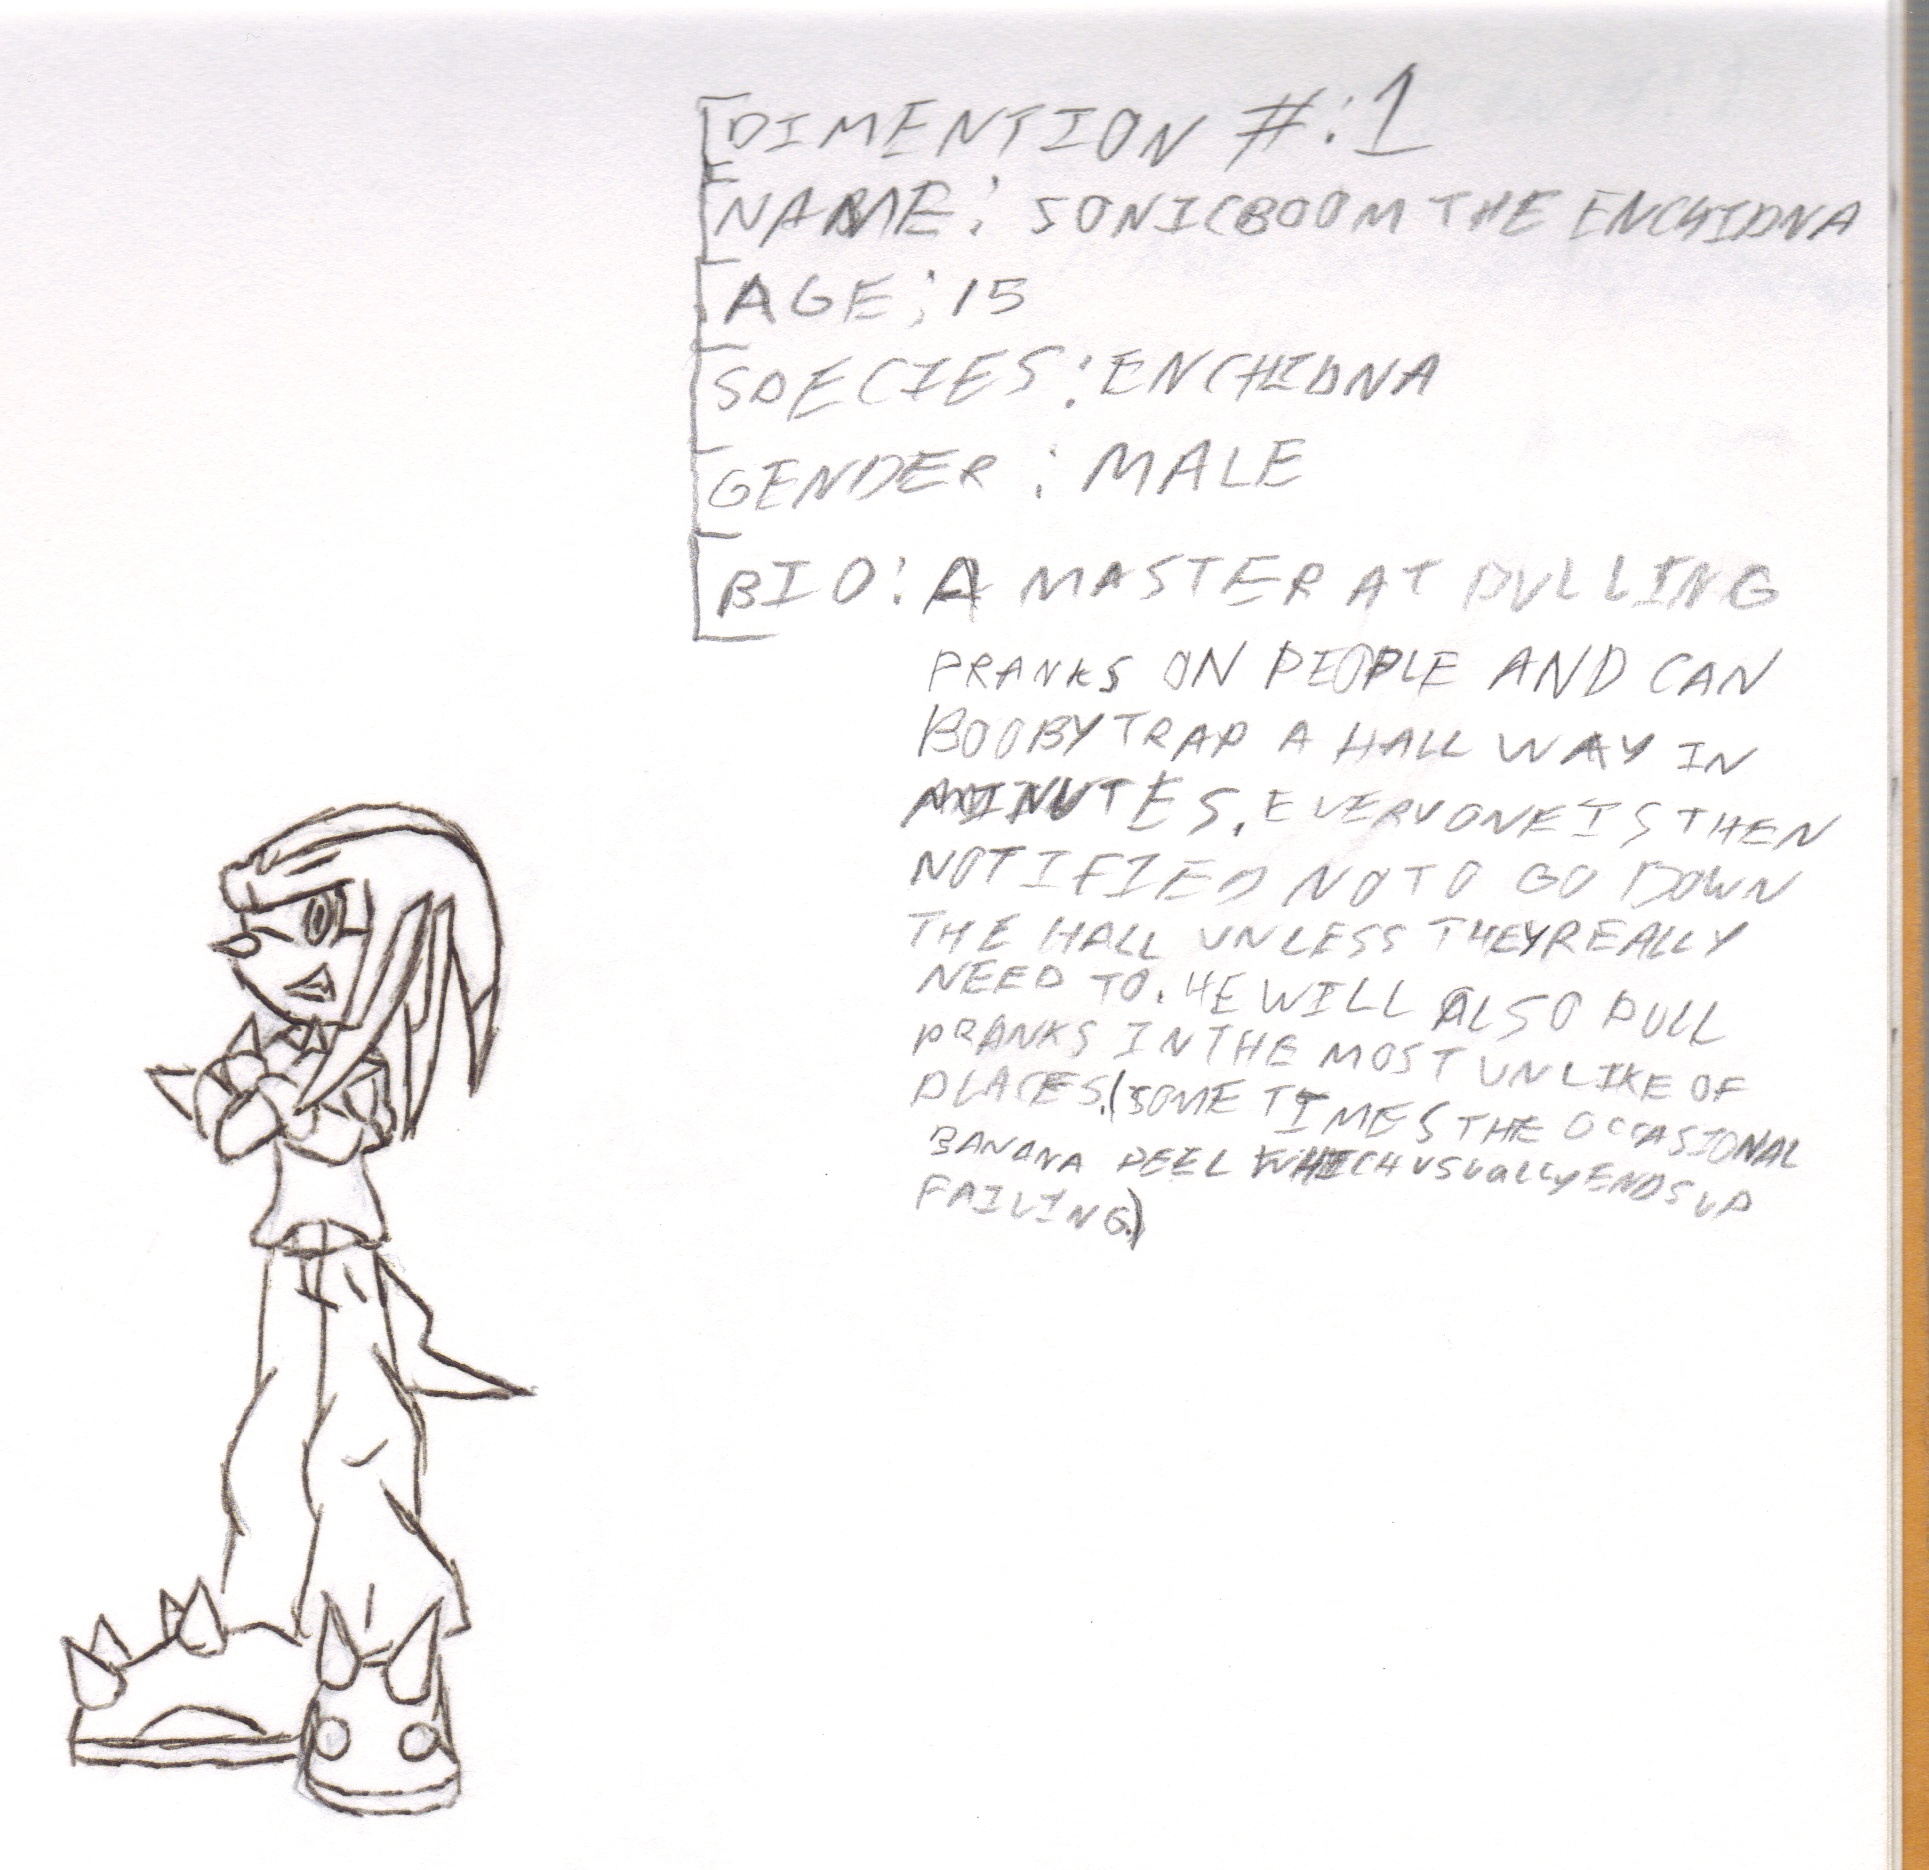 DIMENTION #:1
NAME: SONICBOOM THE ENCHIDNA
AGE: 15
SPECIES: ENCHIDNA
GENDER: MALE
BIO: A MASTER AT PULLING
PRANKS ON PEOPLE AND CAN
BOOBY TRAP A HALL WAY IN
MINUTES. EVERYONE IS THEN
NOTIFIED NOT TO GO DOWN
THE HALL UNLESS THEY REALLY
NEED TO. HE WILL ALSO PULL
PRANKS IN THE MOST UNLIKE OF
PLACES.(SOME TIMES THE OCCASIONAL
BANANA PEEL WHICH USUALLY ENDS UP
FAILING.)